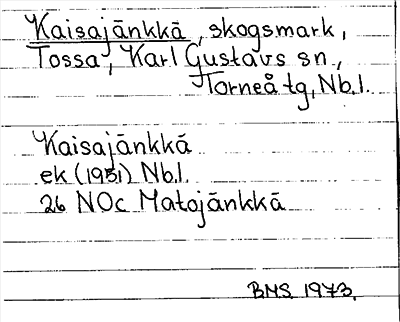 Kaisajänkkä, skogsmark,
Tossa, Karl Gustavs sn.,
Torneå tg, Nb.l.
Kaisajänkkä
ek (1951) Nb.l.
26 NOc Matojänkkä
BMS 1973.